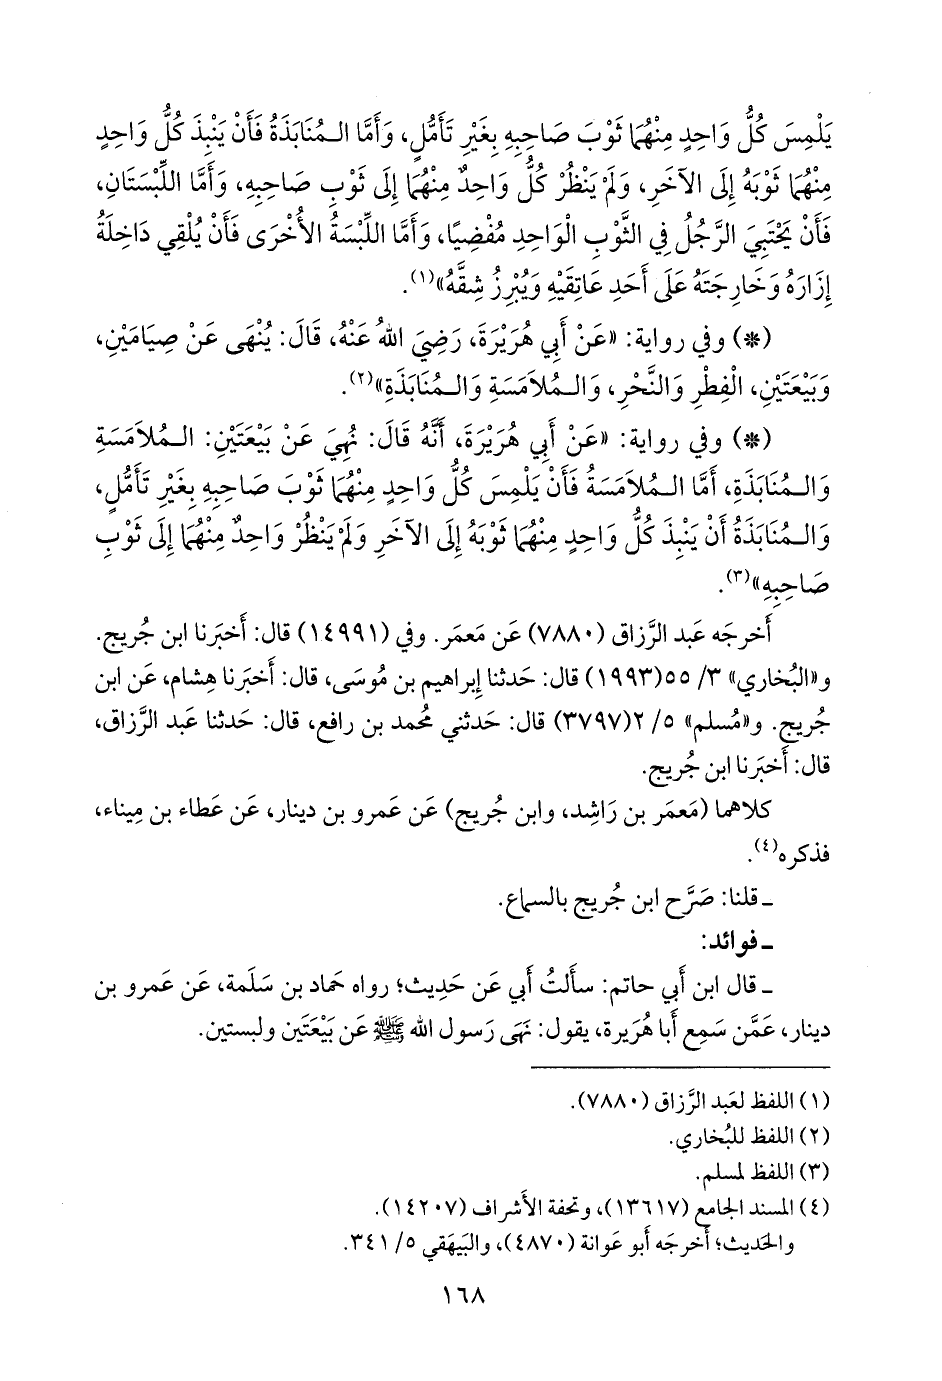 يَلْمِسَ كُلُّ وَاحِدٍ مِنْهُمَا ثَوْبَ صَاحِبِهِ بِغَيْرِ تَأَمُّلٍ، وَأَمَّا الْمُنَابَذَةُ فَأَنْ يَنْبِذَ كُلُّ وَاحِدٍ
مِنْهُمَا ثَوْبَهُ إِلَى الآخَرِ، وَلَمْ يَنْظُرْ كُلُّ وَاحِدٌ مِنْهُمَا إِلَى ثَوْبِ صَاحِبِهِ، وَأَمَّا اللِّبْسَتَانِ،
فَأَنْ يَحْتَبِيَ الرَّجُلُ فِي الثَّوْبِ الْوَاحِدِ مُفْضِيًا، وَأَمَّا اللِّبْسَةُ الأُخْرَى فَأَنْ يُلْقِي دَاخِلَةَ
إِزَارَهُ وَخَارِجَتَهُ عَلَى أَحَدِ عَاتِقَيْهِ وَيُبْرِزُ شِقَّهُ»(١).
(*) وفي رواية: «عَنْ أَبِي هُرَيْرَةَ، رَضِيَ اللهُ عَنْهُ، قَالَ: يُنْهَى عَنْ صِيَامَيْنِ،
وَبَيْعَتَيْنِ، الْفِطْرِ وَالنَّحْرِ، وَالْمُلاَمَسَةِ وَالْمُنَابَذَةِ»(٢).
(*) وفي رواية: «عَنْ أَبِي هُرَيْرَةَ، أَنَّهُ قَالَ: نُهِيَ عَنْ بَيْعَتَيْنِ: الْمُلاَمَسَةِ
وَالْمُنَابَذَةِ، أَمَّا الْمُلاَمَسَةُ فَأَنْ يَلْمِسَ كُلُّ وَاحِدٍ مِنْهُمَا ثَوْبَ صَاحِبِهِ بِغَيْرِ تَأَمُّلٍ،
وَالْمُنَابَذَةُ أَنْ يَنْبِذَ كُلُّ وَاحِدٍ مِنْهُمَا ثَوْبَهُ إِلَى الآخَرِ وَلَمْ يَنْظُرْ وَاحِدٌ مِنْهُمَا إِلَى ثَوْبِ
صَاحِبِهِ»(٣).
أَخرجَه عَبد الرَّزاق (٧٨٨٠) عَن مَعمَر. وفي (١٤٩٩١) قال: أَخبَرنا ابن جُريج.
و«البُخاري» ٣/ ٥٥(١٩٩٣) قال: حَدثنا إبراهيم بن مُوسَى، قال: أَخبَرنا هِشام، عَن ابن
جُريج. و«مُسلم» ٥/ ٢(٣٧٩٧) قال: حَدثني مُحمد بن رافع، قال: حَدثنا عَبد الرَّزاق،
قال: أَخبَرنا ابن جُريج.
كلاهما (مَعمَر بن رَاشِد، وابن جُريج) عَن عَمرو بن دينار، عَن عَطاء بن مِيناء،
فذكره(٤).
ـ قلنا: صَرَّح ابن جُريج بالسماع.
ـ فوائد:
ـ قال ابن أَبي حاتم: سأَلتُ أَبي عَن حَدِيث؛ رواه حَماد بن سَلَمة، عَن عَمرو بن
دينار، عَمَّن سَمِع أَبا هُرَيرة، يقول: نَهَى رَسول الله ﷺ عَن بَيْعَتَين ولبستين.
(١) اللفظ لعَبد الرَّزاق (٧٨٨٠).
(٢) اللفظ للبُخاري.
(٣) اللفظ لمسلم.
(٤) المسند الجامع (١٣٦١٧)، وتحفة الأشراف (١٤٢٠٧).
والحَديث؛ أَخرجَه أَبو عَوانة (٤٨٧٠)، والبَيهَقي ٥/ ٣٤١.
١٦٨